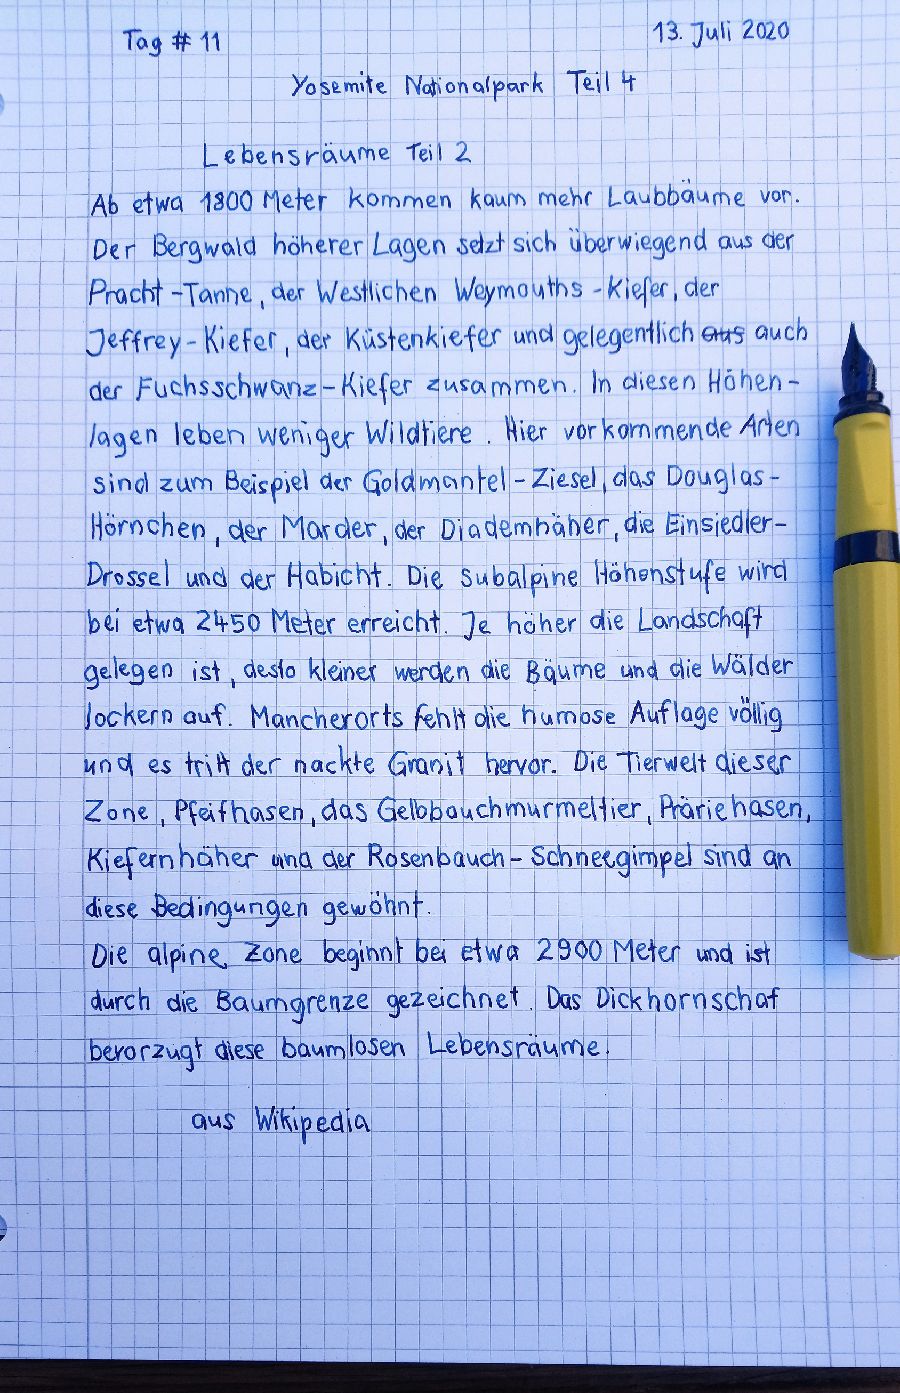 Tag # 11
13. Juli 2020
Yosemite Nationalpark Teil 4
Lebensräume Teil 2
Ab etwa 1800 Meter kommen kaum mehr Laubbäume vor.
Der Bergwald höherer Lagen setzt sich überwiegend aus der
Pracht-Tanne, der Westlichen Weymouths-Kiefer, der
Jeffrey-Kiefer, der Küstenkiefer und gelegentlich aus auch
der Fuchsschwanz-Kiefer zusammen. In diesen Höhen-
lagen leben weniger Wildtiere. Hier vorkommende Arten
sind zum Beispiel der Goldmantel-Ziesel, das Douglas-
Hörnchen, der Marder, der Diademhäher, die Einsiedler-
Drossel und der Habicht. Die subalpine Höhenstufe wird
bei etwa 2450 Meter erreicht. Je höher die Landschaft
gelegen ist, desto kleiner werden die Bäume und die Wälder
lockern auf. Mancherorts fehlt die humose Auflage völlig
und es tritt der nackte Granit hervor. Die Tierwelt dieser
Zone, Pfeifhasen, das Gelbbauchmurmeltier, Präriehasen,
Kiefernhäher und der Rosenbauch-Schneegimpel sind an
diese Bedingungen gewöhnt.
Die alpine Zone beginnt bei etwa 2900 Meter und ist
durch die Baumgrenze gezeichnet. Das Dickhornschaf
bevorzugt diese baumlosen Lebensräume.
aus Wikipedia